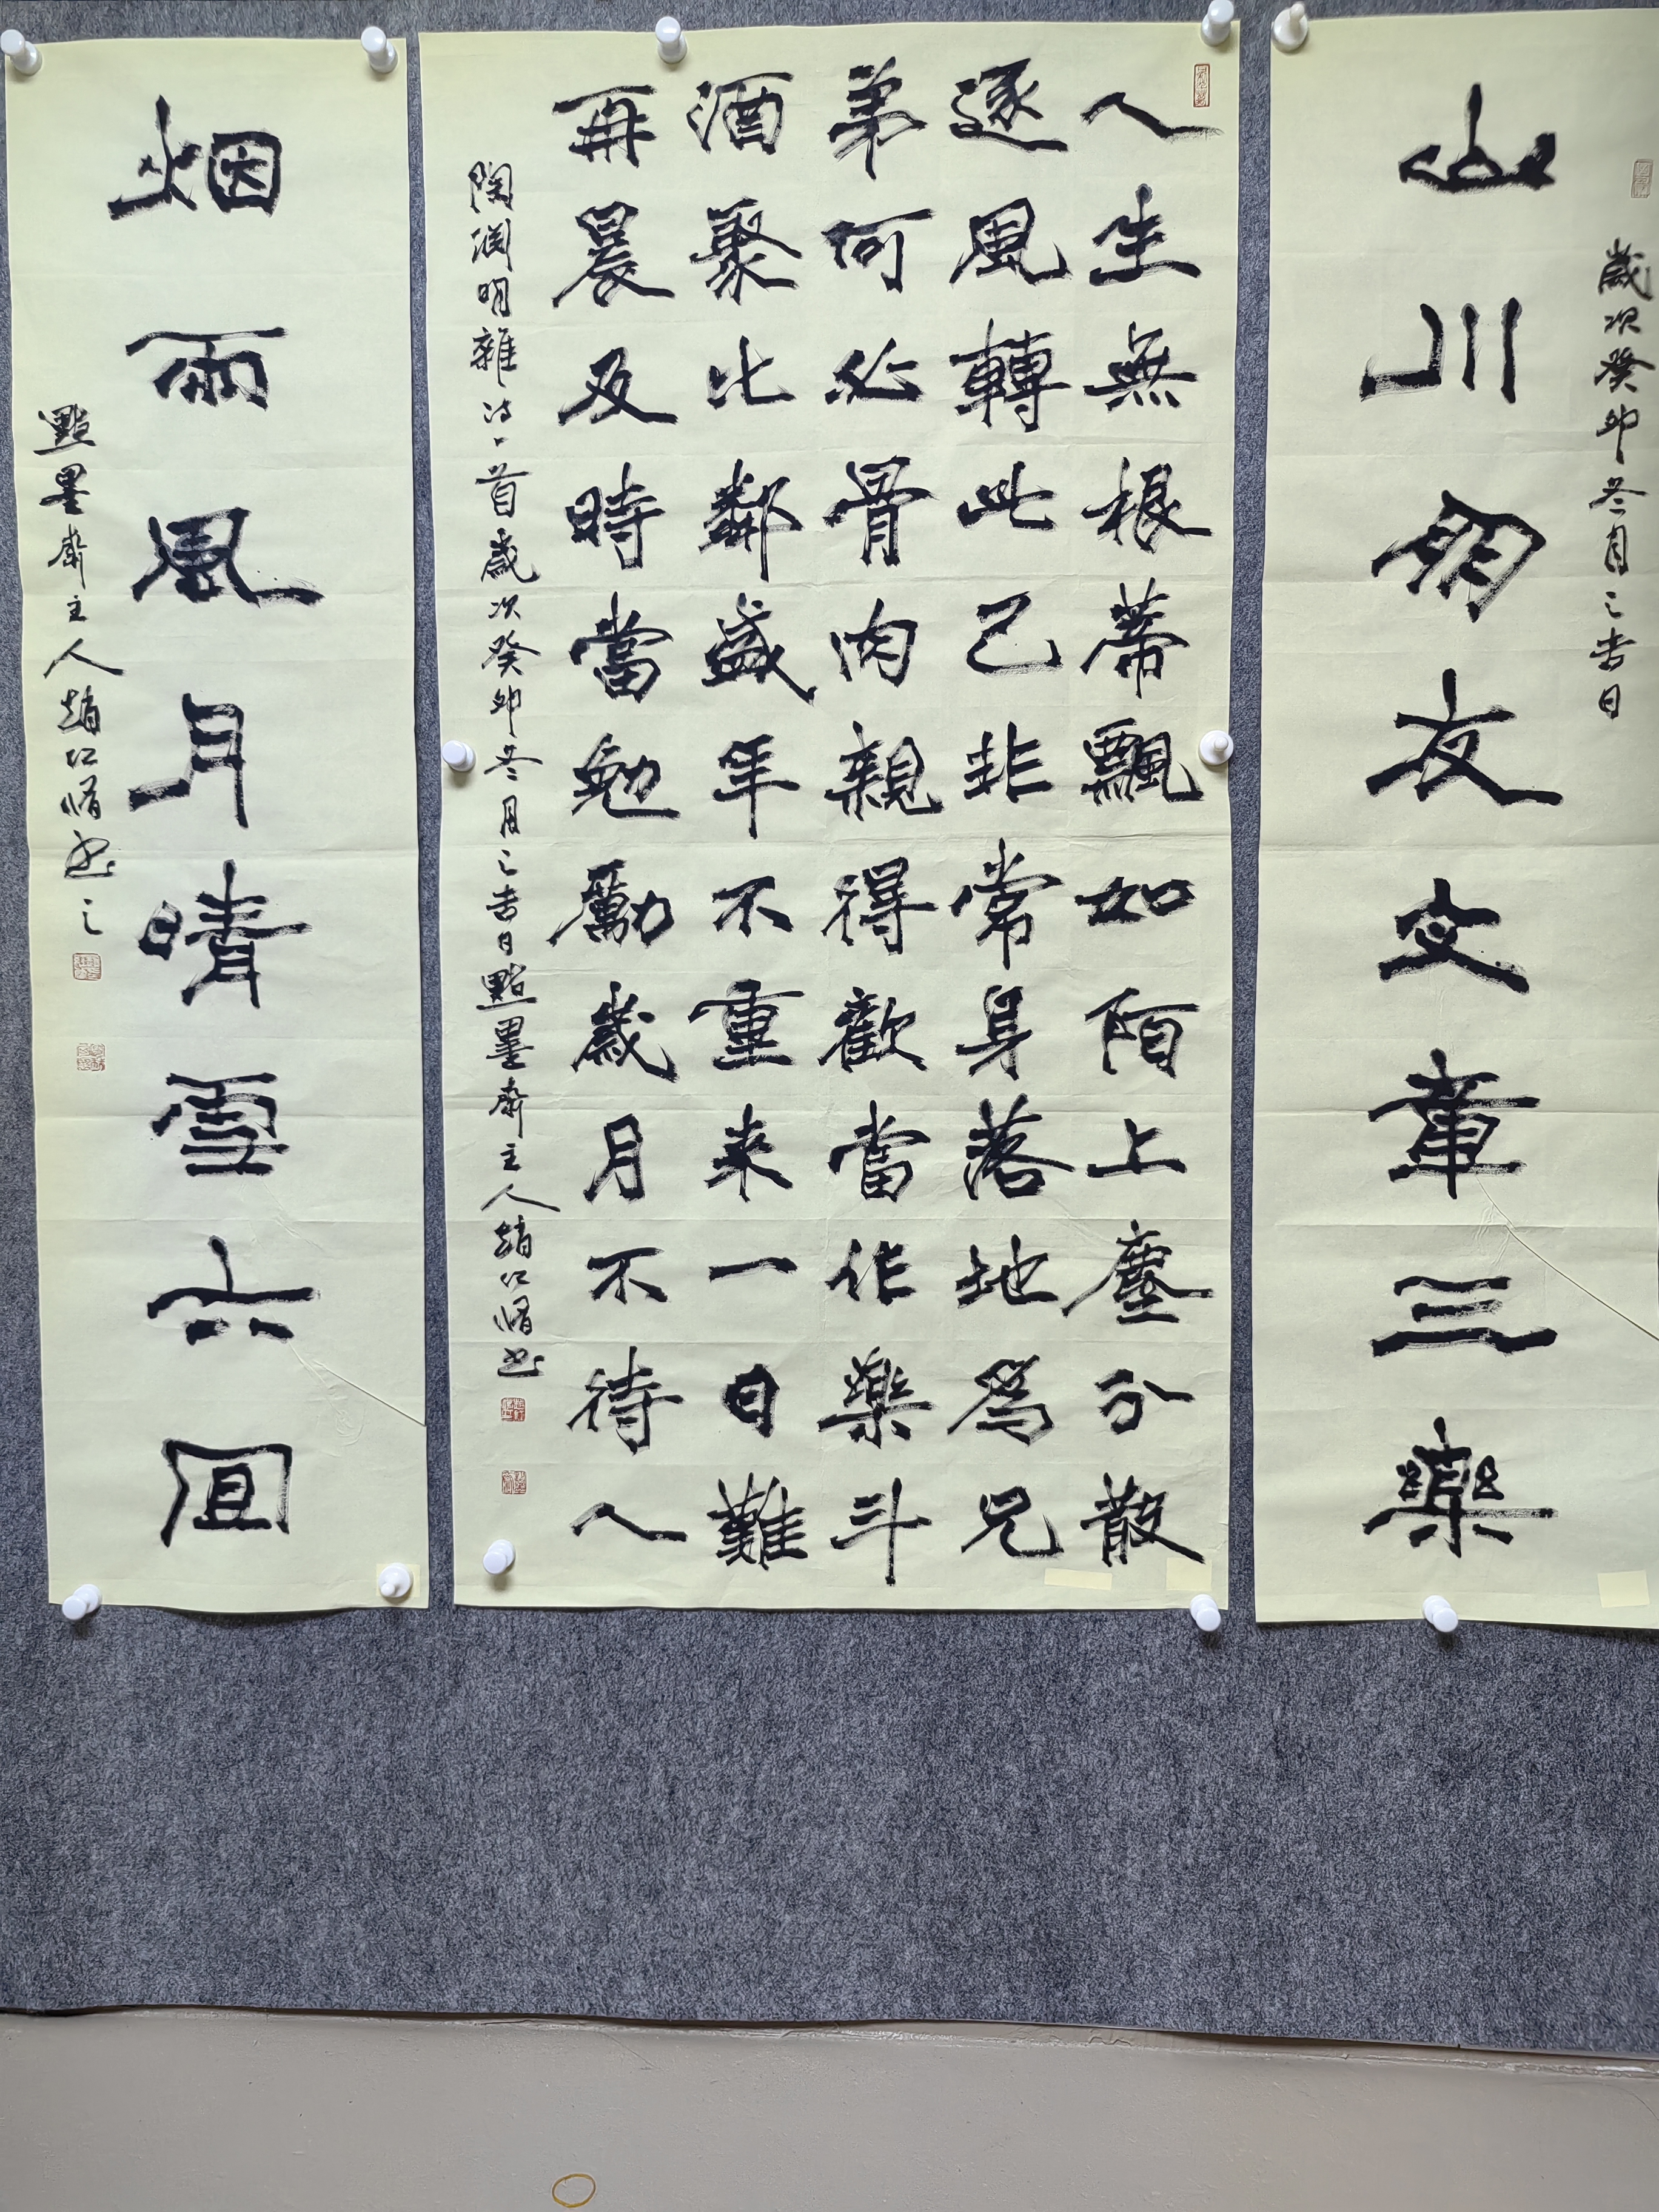 歲次癸卯冬月之吉日
山川朋友文章三樂
人生無根蒂飄如陌上塵分散
逐風轉此已非常身落地爲兄
弟何必骨肉親得歡當作樂斗
酒聚比鄰盛年不重来一日難
再晨及時當勉勵歲月不待人
陶渊明雜诗一首歲次癸卯冬月之吉日點墨齋主人趙仁脩书
烟雨風月晴雪六宜
點墨齋主人趙仁脩书之